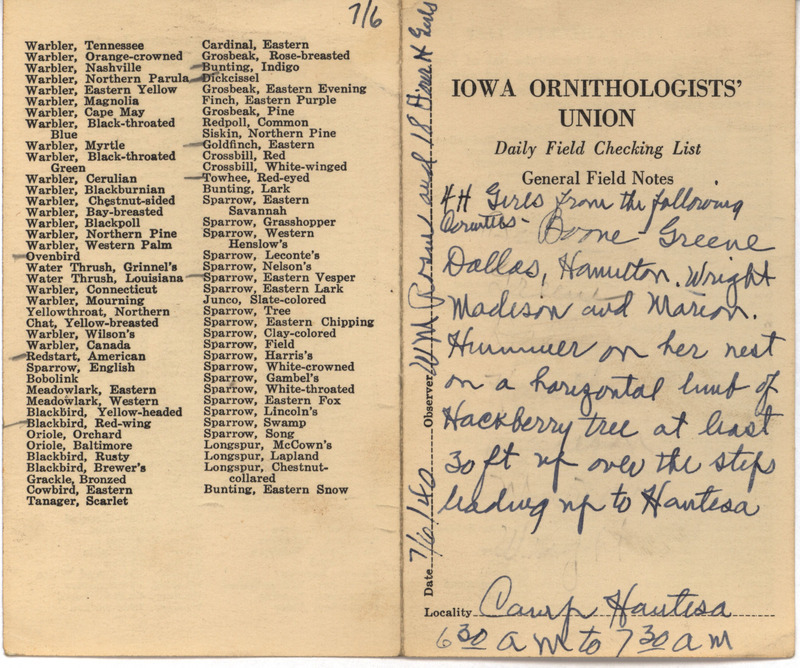 7/6
Warbler, Tennessee
Warbler, Orange-crowned
Warbler, Nashville
Warbler, Northern Parula
Warbler, Eastern Yellow
Warbler, Magnolia
Warbler, Cape May
Warbler, Black-throated
Blue
Warbler, Myrtle
Warbler, Black-throated
Green
Warbler, Cerulian
Warbler, Blackburnian
Warbler, Chestnut-sided
Warbler, Bay-breasted
Warbler, Blackpoll
Warbler, Northern Pine
Warbler, Western Palm
Ovenbird
Water Thrush, Grinnel's
Water Thrush, Louisiana
Warbler, Connecticut
Warbler, Mourning
Yellowthroat, Northern
Chat, Yellow-breasted
Warbler, Wilson's
Warbler, Canada
Redstart, American
Sparrow, English
Bobolink
Meadowlark, Eastern
Meadowlark, Western
Blackbird, Yellow-headed
Blackbird, Red-wing
Oriole, Orchard
Oriole, Baltimore
Blackbird, Rusty
Blackbird, Brewer's
Grackle, Bronzed
Cowbird, Eastern
Tanager, Scarlet
Cardinal, Eastern
Grosbeak, Rose-breasted
Bunting, Indigo
Dickcissel
Grosbeak, Eastern Evening
Finch, Eastern Purple
Grosbeak, Pine
Redpoll, Common
Siskin, Northern Pine
Goldfinch, Eastern
Crossbill, Red
Crossbill, White-winged
Towhee, Red-eyed
Bunting, Lark
Sparrow, Eastern
Savannah
Sparrow, Grasshopper
Sparrow, Western
Henslow's
Sparrow, Leconte's
Sparrow, Nelson's
Sparrow, Eastern Vesper
Sparrow, Eastern Lark
Junco, Slate-colored
Sparrow, Tree
Sparrow, Eastern Chipping
Sparrow, Clay-colored
Sparrow, Field
Sparrow, Harris's
Sparrow, White-crowned
Sparrow, Gambel's
Sparrow, White-throated
Sparrow, Eastern Fox
Sparrow, Lincoln's
Sparrow, Swamp
Sparrow, Song
Longspur, McCown's
Longspur, Lapland
Longspur, Chestnut-
collared
Bunting, Eastern Snow
Date 7/6/40 Observer Wm Rosene and 18 H Girls
IOWA ORNITHOLOGISTS'
UNION
Daily Field Checking List
General Field Notes
4H Girls from the following
Counties - Boone Greene
Dallas, Hamilton, Wright
Madison and Marion.
Hummer on her nest
on a horizontal limb of
Hackberry tree at least
30 ft up over the steps
leading up to Hantesa
Locality Camp Hantesa
6 30 a m to 7 30 a m